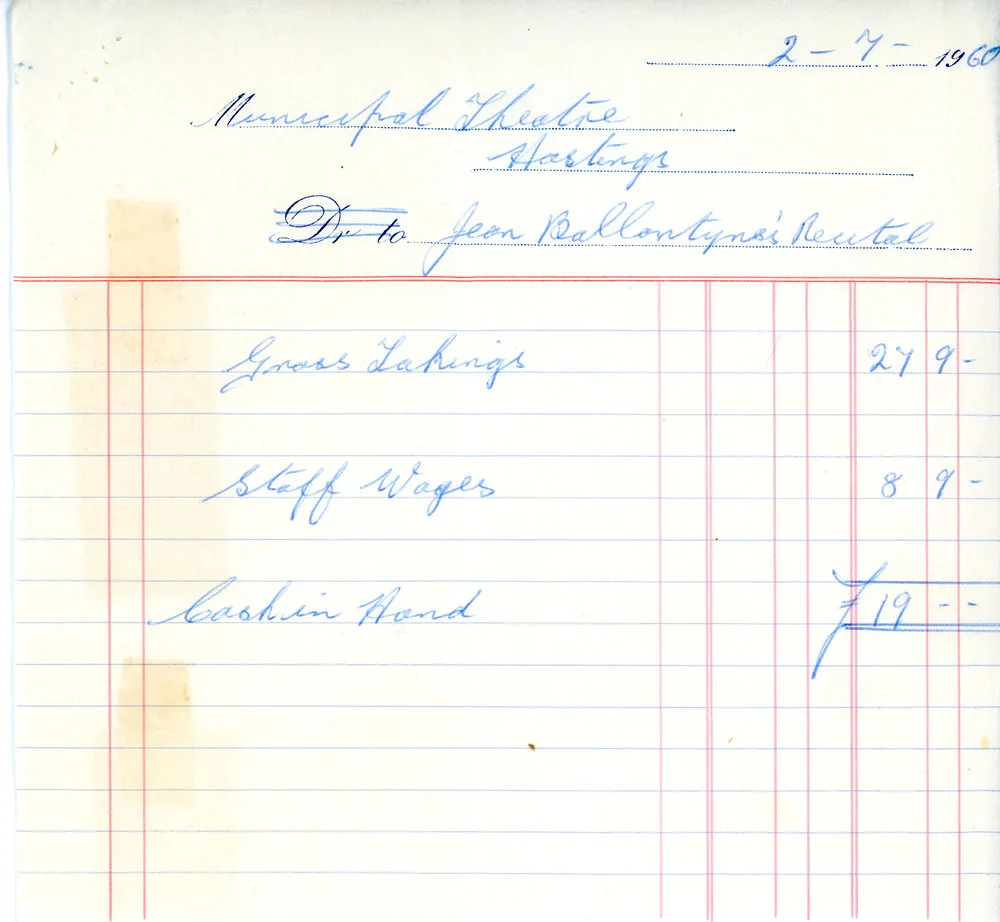 2 - 7 - 1960
Municipal Theatre
Hastings
Dr to Jean Ballantyne's Recital
Gross Takings 27 9 -
Staff Wages 8 9 -
Cash in Hand £ 19 - -